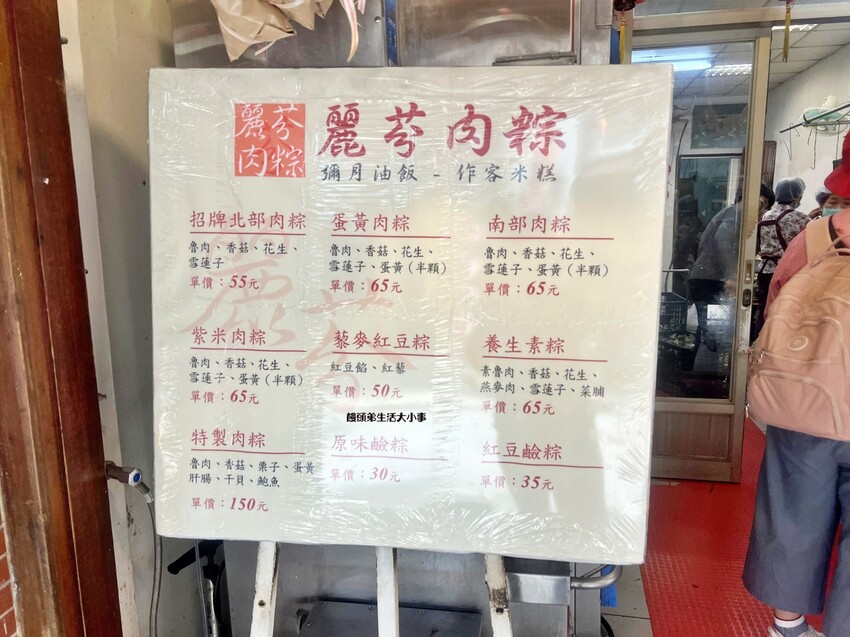 麗芬
肉粽
麗芬肉粽
彌月油飯 - 作客米糕
招牌北部肉粽
魯肉、香菇、花生、
雪蓮子
單價：55元
蛋黃肉粽
魯肉、香菇、花生、
雪蓮子、蛋黃（半顆）
單價：65元
南部肉粽
魯肉、香菇、花生、
雪蓮子、蛋黃（半顆）
單價：65元
紫米肉粽
魯肉、香菇、花生、
雪蓮子、蛋黃（半顆）
單價：65元
藜麥紅豆粽
紅豆餡、紅藜
單價：50元
養生素粽
素魯肉、香菇、花生、
燕麥肉、雪蓮子、菜脯
單價：65元
饅頭弟生活大小事
特製肉粽
魯肉、香菇、栗子、蛋黃
肝腸、干貝、鮑魚
單價：150元
原味鹼粽
單價：30元
紅豆鹼粽
單價：35元
麗芬